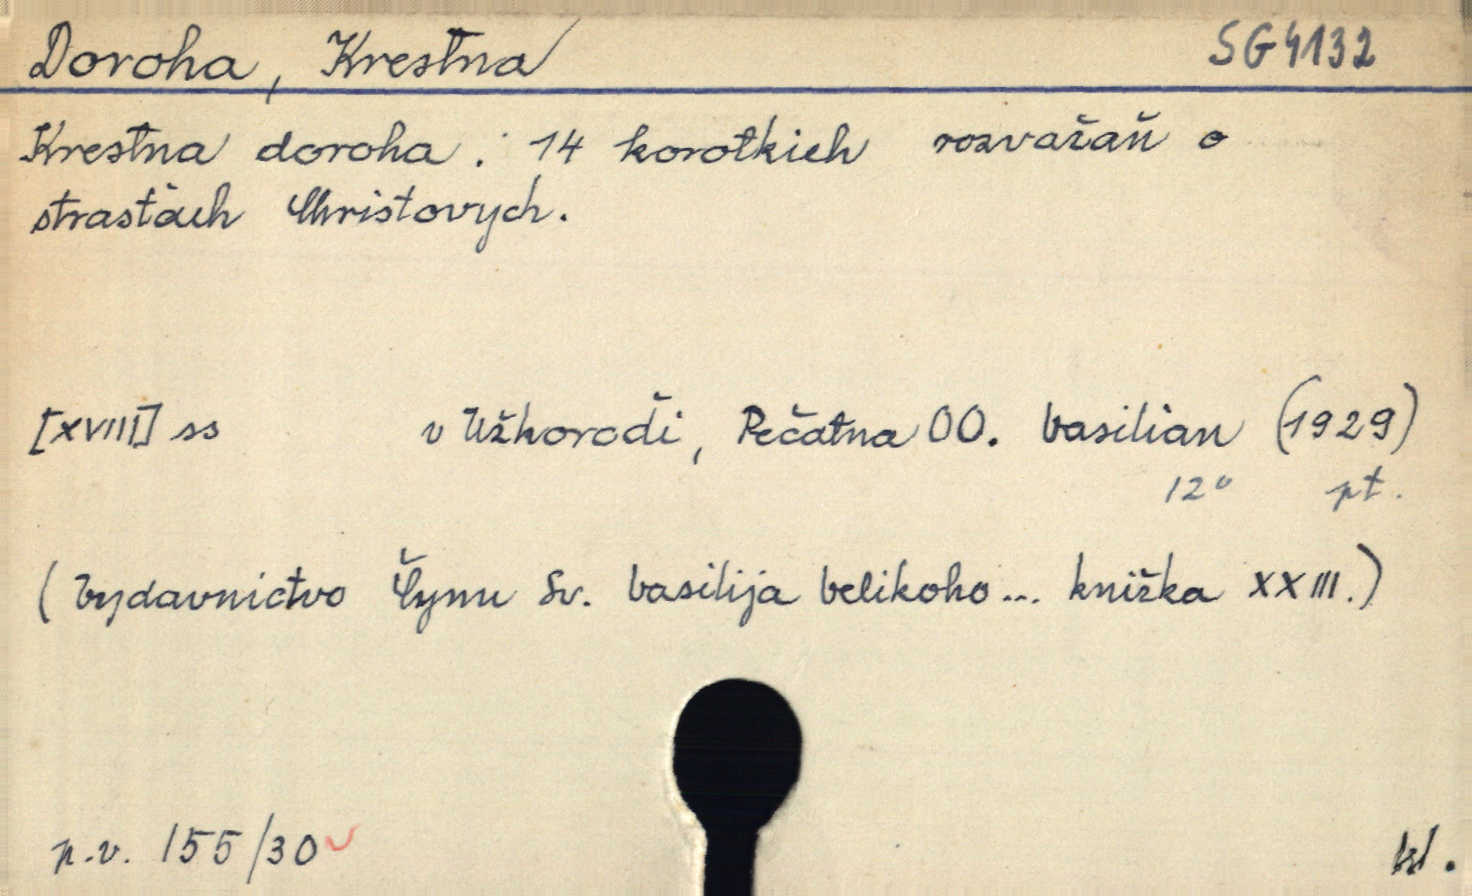 Doroha, Krestna
SG4132
Krestna doroha. 14 korotkich rozvažaň o
strastach Christovych.
[XVIII] ss v Užhoroďi, Pečatna OO. Vasilian (1929)
12° pt.
(Vydavnictvo Čynu Sv. Vasilija Velikoho... knižka XXIII.)
p.v. 155/30